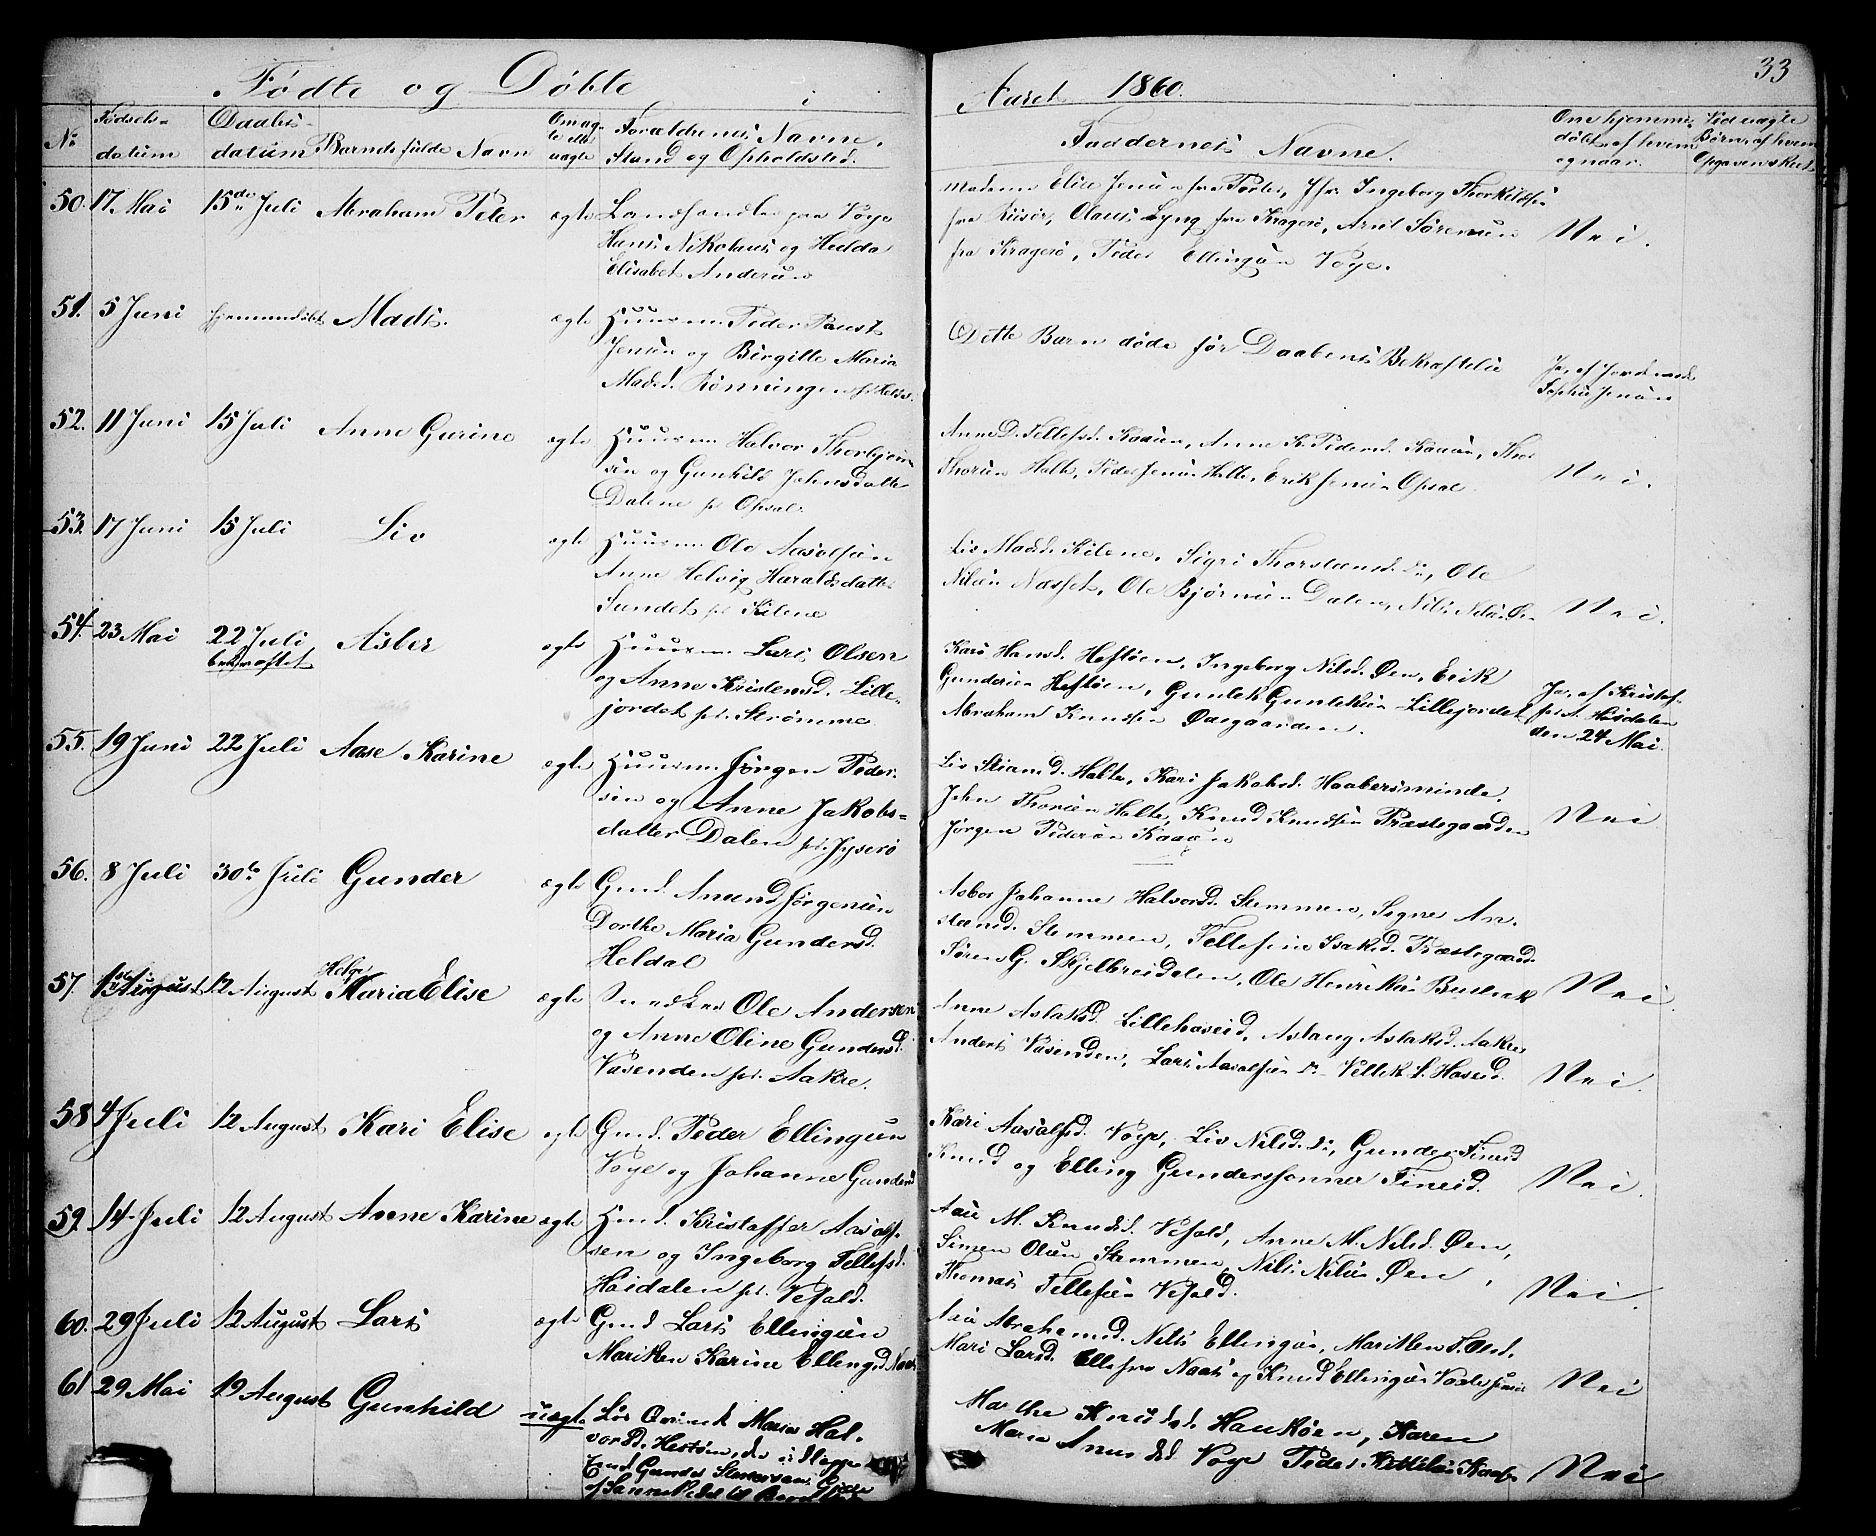 Fødte og Döbte i
Aaret 1860.
33
No
Fødsels-
datum
Daabs-
datum
Barnets fulde Navn
Om æg-
te ell.
uægte
Forældrenes Navne,
Stand og Opholdsted.
Faddernes Navne.
Om hjemme-
døbt, af hvem
og naar.
Ved uægte
Børn, af hvem
Opgaven skeet
50. 17 Mai 15de Juli Abraham Peter ægte Landhandler paa Voje
Hans Nikolaus og Hedda
Elisabet Andersen
Madame Elise Jensen fra Porter, Jfr. Ingeborg Thorkildsen
fra Riisør, Olaus Lyng fra Kragerø, Arnt Sörensen
fra Kragerö, Peder Ellingsen Voje.
Nei.
51. 5 Juni hjemmedøbt Mads. ægte Huusm. Peder Paust
Jensen og Birgitte Maria
Madsd. Rönningen
Dette Barn døde før Daabens Bekræftelse
Ja, af Jordemod.
Sophie Jensen
52. 11 Juni 15 Juli Anne Gurine ægte Huusm. Halvor Thorbjörn-
sen og Gunhild Johnsdatter
Dalene pl. Opsal.
Anne D. Tellefsd. Kaasen, Anne K. Pedersd. Kaasen, Thor
Thorsen Holte, Peder Jensen Holte, Erik Jensen Opsal.
Nei.
53. 17 Juni 15 Juli Liv ægte Huusm. Ole Aasolfsen
Anne Helvig Haraldsdatter
Sundet pl. Kilene
Liv Madsd. Kilene, Sigri Thorstensd. do, Ole
Nilsen Næsset, Ole Bjørnsen Dalen, Nils Nilsen Øen
Nei.
54. 23 Mai 22 Juli Asber ægte Huusm. Lars Olsen
bekræftet
og Anne Kristensd. Lille-
jordet pl. Strömme
Kari Hansd. Heftöen, Ingeborg Nilsd. Øen, Erik
Gundersen Heftöen, Gunlek Gunleksen Lillejordet
Abraham Knudsen Ødegaarden.
Ja, af Kristof-
fer A. Høidalen
den 24 Mai.
55. 19 Juni 22 Juli Aase Karine ægte Huusm. Jörgen Peder-
sen og Anne Jakobs-
datter Dalen pl.
Liv Steansd. Holte, Kari Jakobsd. Haabesminde,
John Thorsen Holte, Knud Knudsen Præstegaarden
Jørgen Pedersen Kaasen
Nei
56. 8 Juli 30te Juli Gunder ægte Gmd. Amund Jörgensen
Dorthe Maria Gundersd.
Heldal
Asbor Johanne Halvorsd. Stemmen, Signe An-
stensd. Stemmen, Tellef Isaksd. Præstegaard.
Søren G. Skjelbreidalen, Ole Henriksen Buslæk
Nei.
57. 1ste August 12 August Helge
Maria Elise ægte Snedker Ole Andersen
og Anne Oline Gundersd.
Vasenden pl. Aakre.
Anne Aslaksd. Lillehoseid, Aslaug Aslaksd. Aakre
Anders Vasenden, Lars Aasolfsen do Vellek L. Hoseid.
Nei.
58 4 Juli 12 August Kari Elise ægte Gmd. Peder Ellingsen
Voje og Johanne Gundersd
Kari Aasolfsd. Voje, Liv Nilsd. do, Gunder Fineid
Knud og Elling Gunderssønner Fineid.
Nei.
59. 14 Juli 12 August Anne Karine ægte Hmd. Kristoffer Aasolf-
sen og Ingeborg Tellefsd.
Höidalen pl. Vefald.
Aase M. Knudsd. Vefald, Anne M. Nilsd. Øen,
Simon Olsen Stemmen, Nils Nilsen Øen,
Thomas Tellefsen Vefald.
Nei.
60. 29 Juli 12 August Lars ægte Gmd Lars Ellingsen
Mariken Karine Ellingsd.
Abrahamsd. Nils Ellingsen, Mariken T. Olsd.
Mari Larsd. Naas og Knud Ellingsen
Nei
61 29 Mai 19 August Gunhild uægte Lös Qvinde Maria Hal-
vorsd. Heftöen,
Gmd Gunder
Marthe Knudsd. Hauköen, Karen
Maria Amundsd Voje Peder Kittilsen Kaasen
Nei